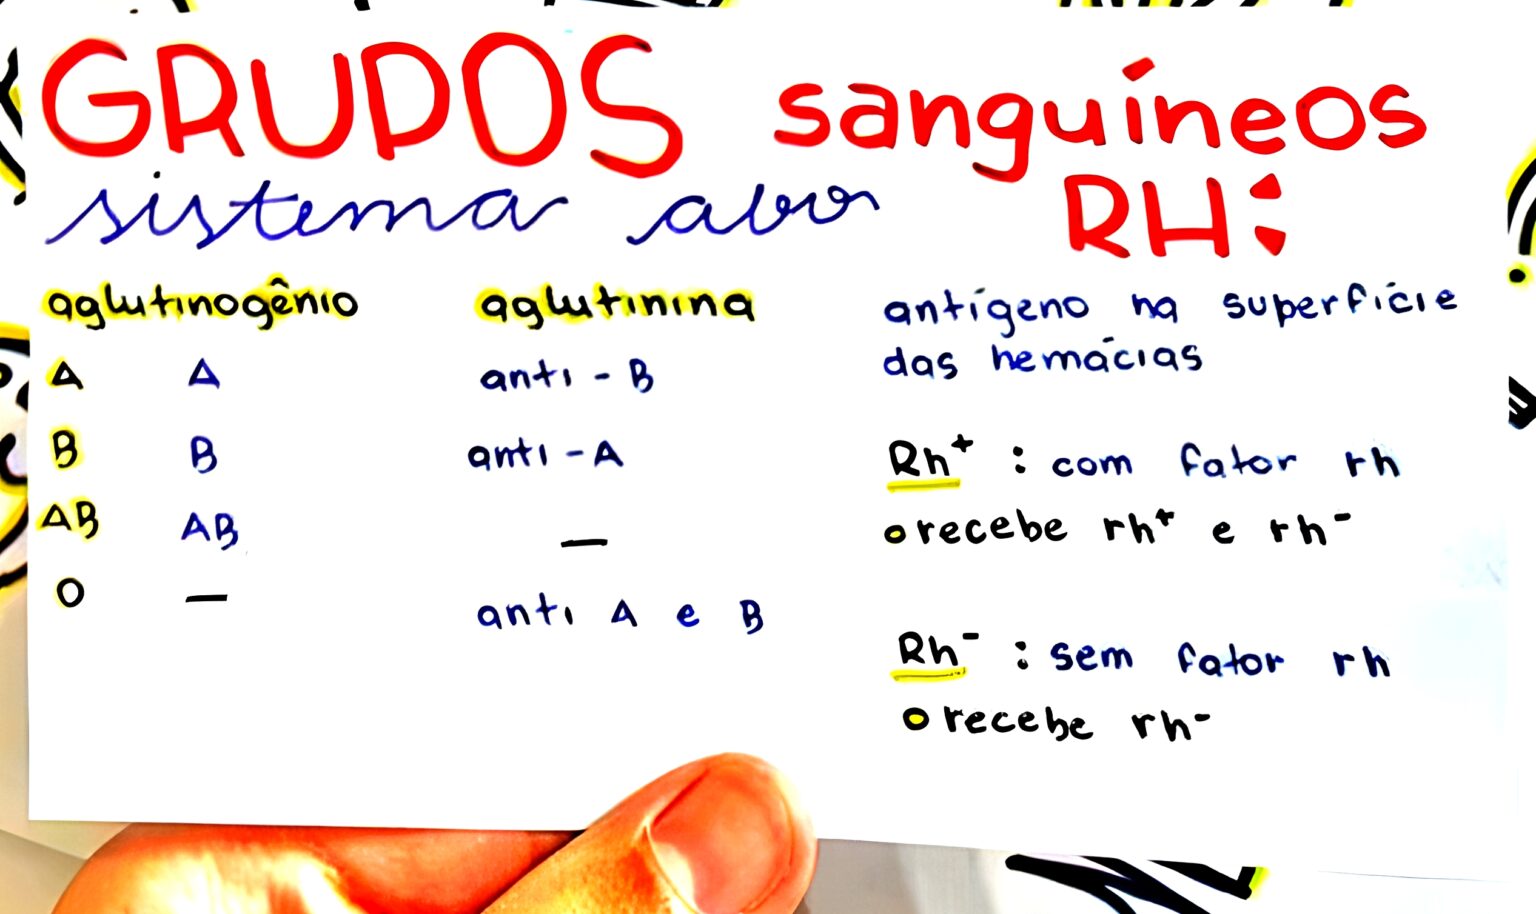 GRUPOS sanguíneos
sistema abo
aglutinogênio aglutinina
A A anti - B
B B anti - A
AB AB —
O — anti A e B
RH:
antígeno na superfície
das hemácias
Rh+ : com fator rh
recebe rh+ e rh-
Rh- : sem fator rh
recebe rh-